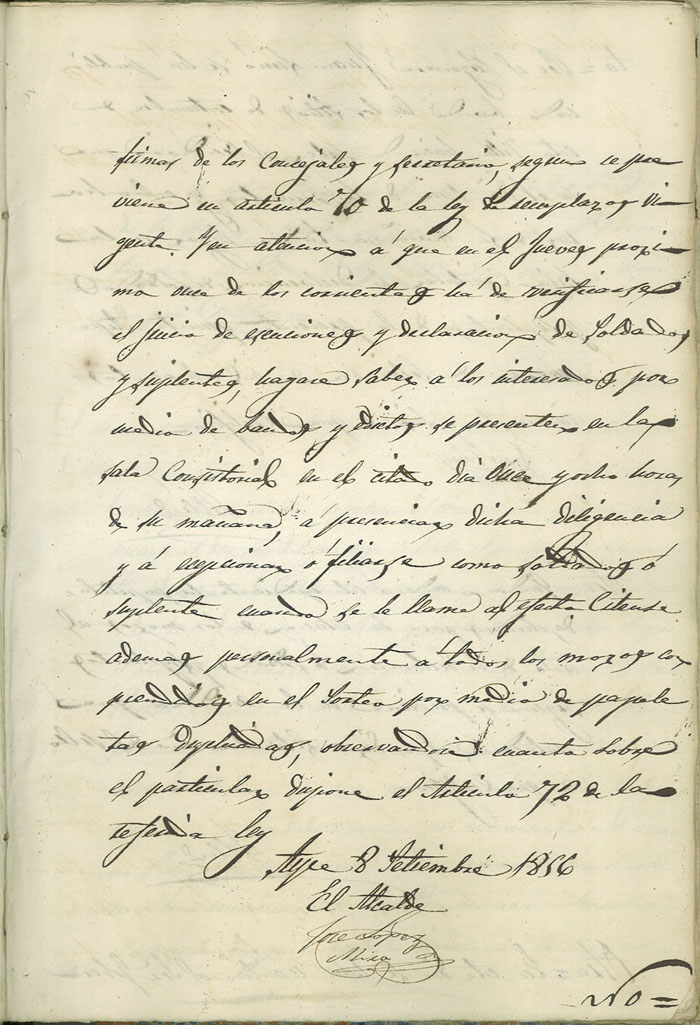 firmas de los Concejales y secretario, segun se pre
viene en articulo 70 de la ley de remplazos vi-
gente. Y en atencion á que en el Jueves proxi-
mo once de los corrientes há de verificarse
el juicio de esenciones y declaracion de Soldados
y suplentes, hagase saber á los interesados por
medio de bandos y edictos se presenten en la
sala Consistorial en el citado dia once y ocho horas
de su mañana, á presenciar dicha diligencia
y á escepcionar ó filiarse como soldados ó
suplente cuando se le llame al efecto Citense
ademas personalmente á todos los mozos com
prendidos en el Sorteo por medio de papele
tas duplicadas, observandose cuanto sobre
el particular dispone el Articulo 72 de la
referida ley
Aspe 8 Setiembre 1856
El Alcalde
Jose Lopez
Mira
No=